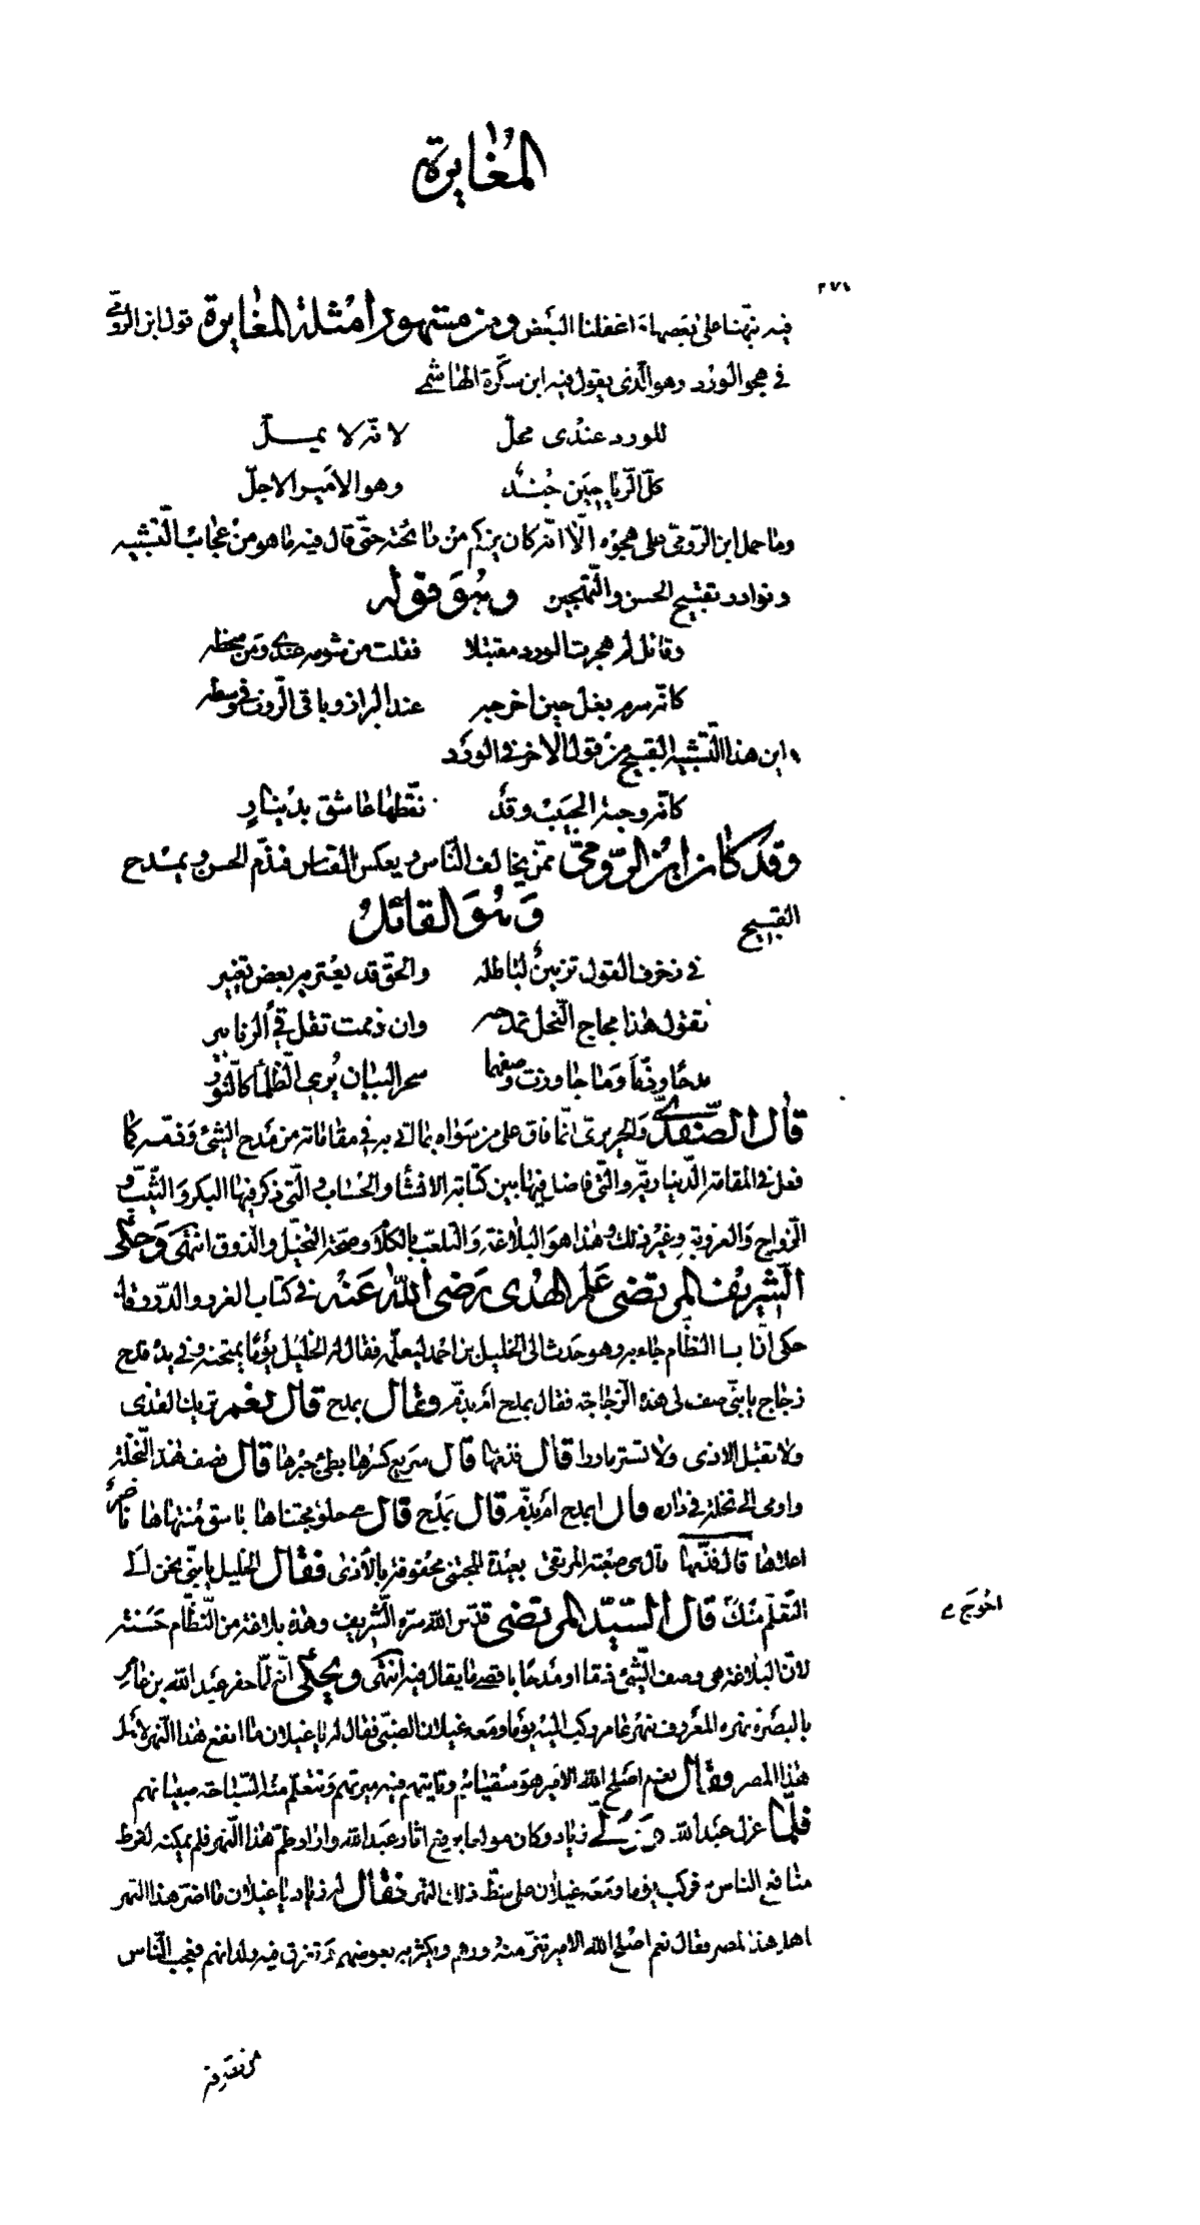 المغايرة
٢٧١
فيه نبهنا على بعضها اغفلنا البعض ومن مشهور امثلة المغايرة قول ابن الرومي
في هجو الورد وهو الذي يقول فيه ابن سكرة الهاشمي
للورد عندى محل لانه لا يمل
كل الرياحين جند وهو الامير الاجل
وما حمل ابن الرومى على هجوه الا انه كان يزكم من رائحته حتى قال فيه ما هو من عجائب التشبيه
ونوادر تقبيح الحسن والتهجين وهو قوله
وقائل لم هجرت الورد مقتبلا فقلت من شومه عندي ومن سخطه
كانه سرم بغل حين اخرجه عند البراز وباقى الروث في وسطه
واين هذا التشبيه القبيح من قول الاخر في الورد
كانه وجنة الحبيب وقد نقطها عاشق بدينار
وقد كان ابن الرومي ممن يخالف الناس ويعكس القياس فيذم الحسن ويمدح
القبيح وهو القائل
في زخرف القول تزيين لباطله والحق قد يعتريه بعض تغيير
نقول هذا مجاج النحل تمدحه وان ذممت تقل قئ الزنابير
مدحا وذما وما جاوزت وصفهما سحر البيان يرى الظلماء كالنور
قال الصفدي والحريرى انما فاق على من سواه بما اتى به في مقاماته من مدح الشئ وذمه كما
فعل في المقامة الدينارية والتى فاضل فيها بين كتابة الانشاء والحساب والتى ذكر فيها البكر والثيب و
الزواج والعزوبة وغير ذلك وهذا هو البلاغة والتلعب بالكلام وصحة التخيل والذوق انتهى وحكى
الشريف المرتضى علم الهدى رضى الله عنه في كتاب الغرر والدرر قال
حكى ان ابا النظام جاء به وهو حدث الى الخليل بن احمد ليعلمه فقال له الخليل يوما يمتحنه وفي يده قدح
زجاج يا بنى صف لى هذه الزجاجة فقال بمدح ام بذم وقال بمدح قال نعم تريك القذى
ولا تقبل الاذى ولا تستر ما ورا قال فذمها قال سريع كسرها بطئ جبرها قال فصف هذه النخلة
واومى الى نخلة في داره قال ابمدح ام بذم قال بمدح قال هي حلو مجتناها باسق منتهاها ناضر
اعلاها قال فذمها قال هي صعبة المرتقى بعيدة المجتنى محفوفة بالاذى فقال الخليل يا بنى نحن الى
التعلم منك قال السيد المرتضى قدس الله سره الشريف وهذه بلاغة من النظام حسنة
احوج
لان البلاغة هي وصف الشئ ذما او مدحا باقصى ما يقال فيه انتهى ويحكى انه لما حفر عبد الله بن عامر
بالبصرة نهره المعروف بنهر عامر ركب اليه يوما ومعه غيلان الضبى فقال له يا غيلان ما انفع هذا النهر لاهل
هذا المصر وقال نعم اصلح الله الامير هو سقياهم وتاتيهم فيه ميرتهم وتتعلم منه السباحة صبيانهم
فلما عزل عبد الله زياد وكان مولعا بمحو اثار عبد الله واراد طم هذا النهر فلم يمكنه لفرط
منافع الناس فركب يوما ومعه غيلان على شط ذلك النهر فقال له زياد يا غيلان ما اضر هذا النهر
اهل هذا المصر فقال نعم اصلح الله الامير تنز منه دورهم ويكثر به بعوضهم وتغرق فيه ولدانهم فعجب الناس